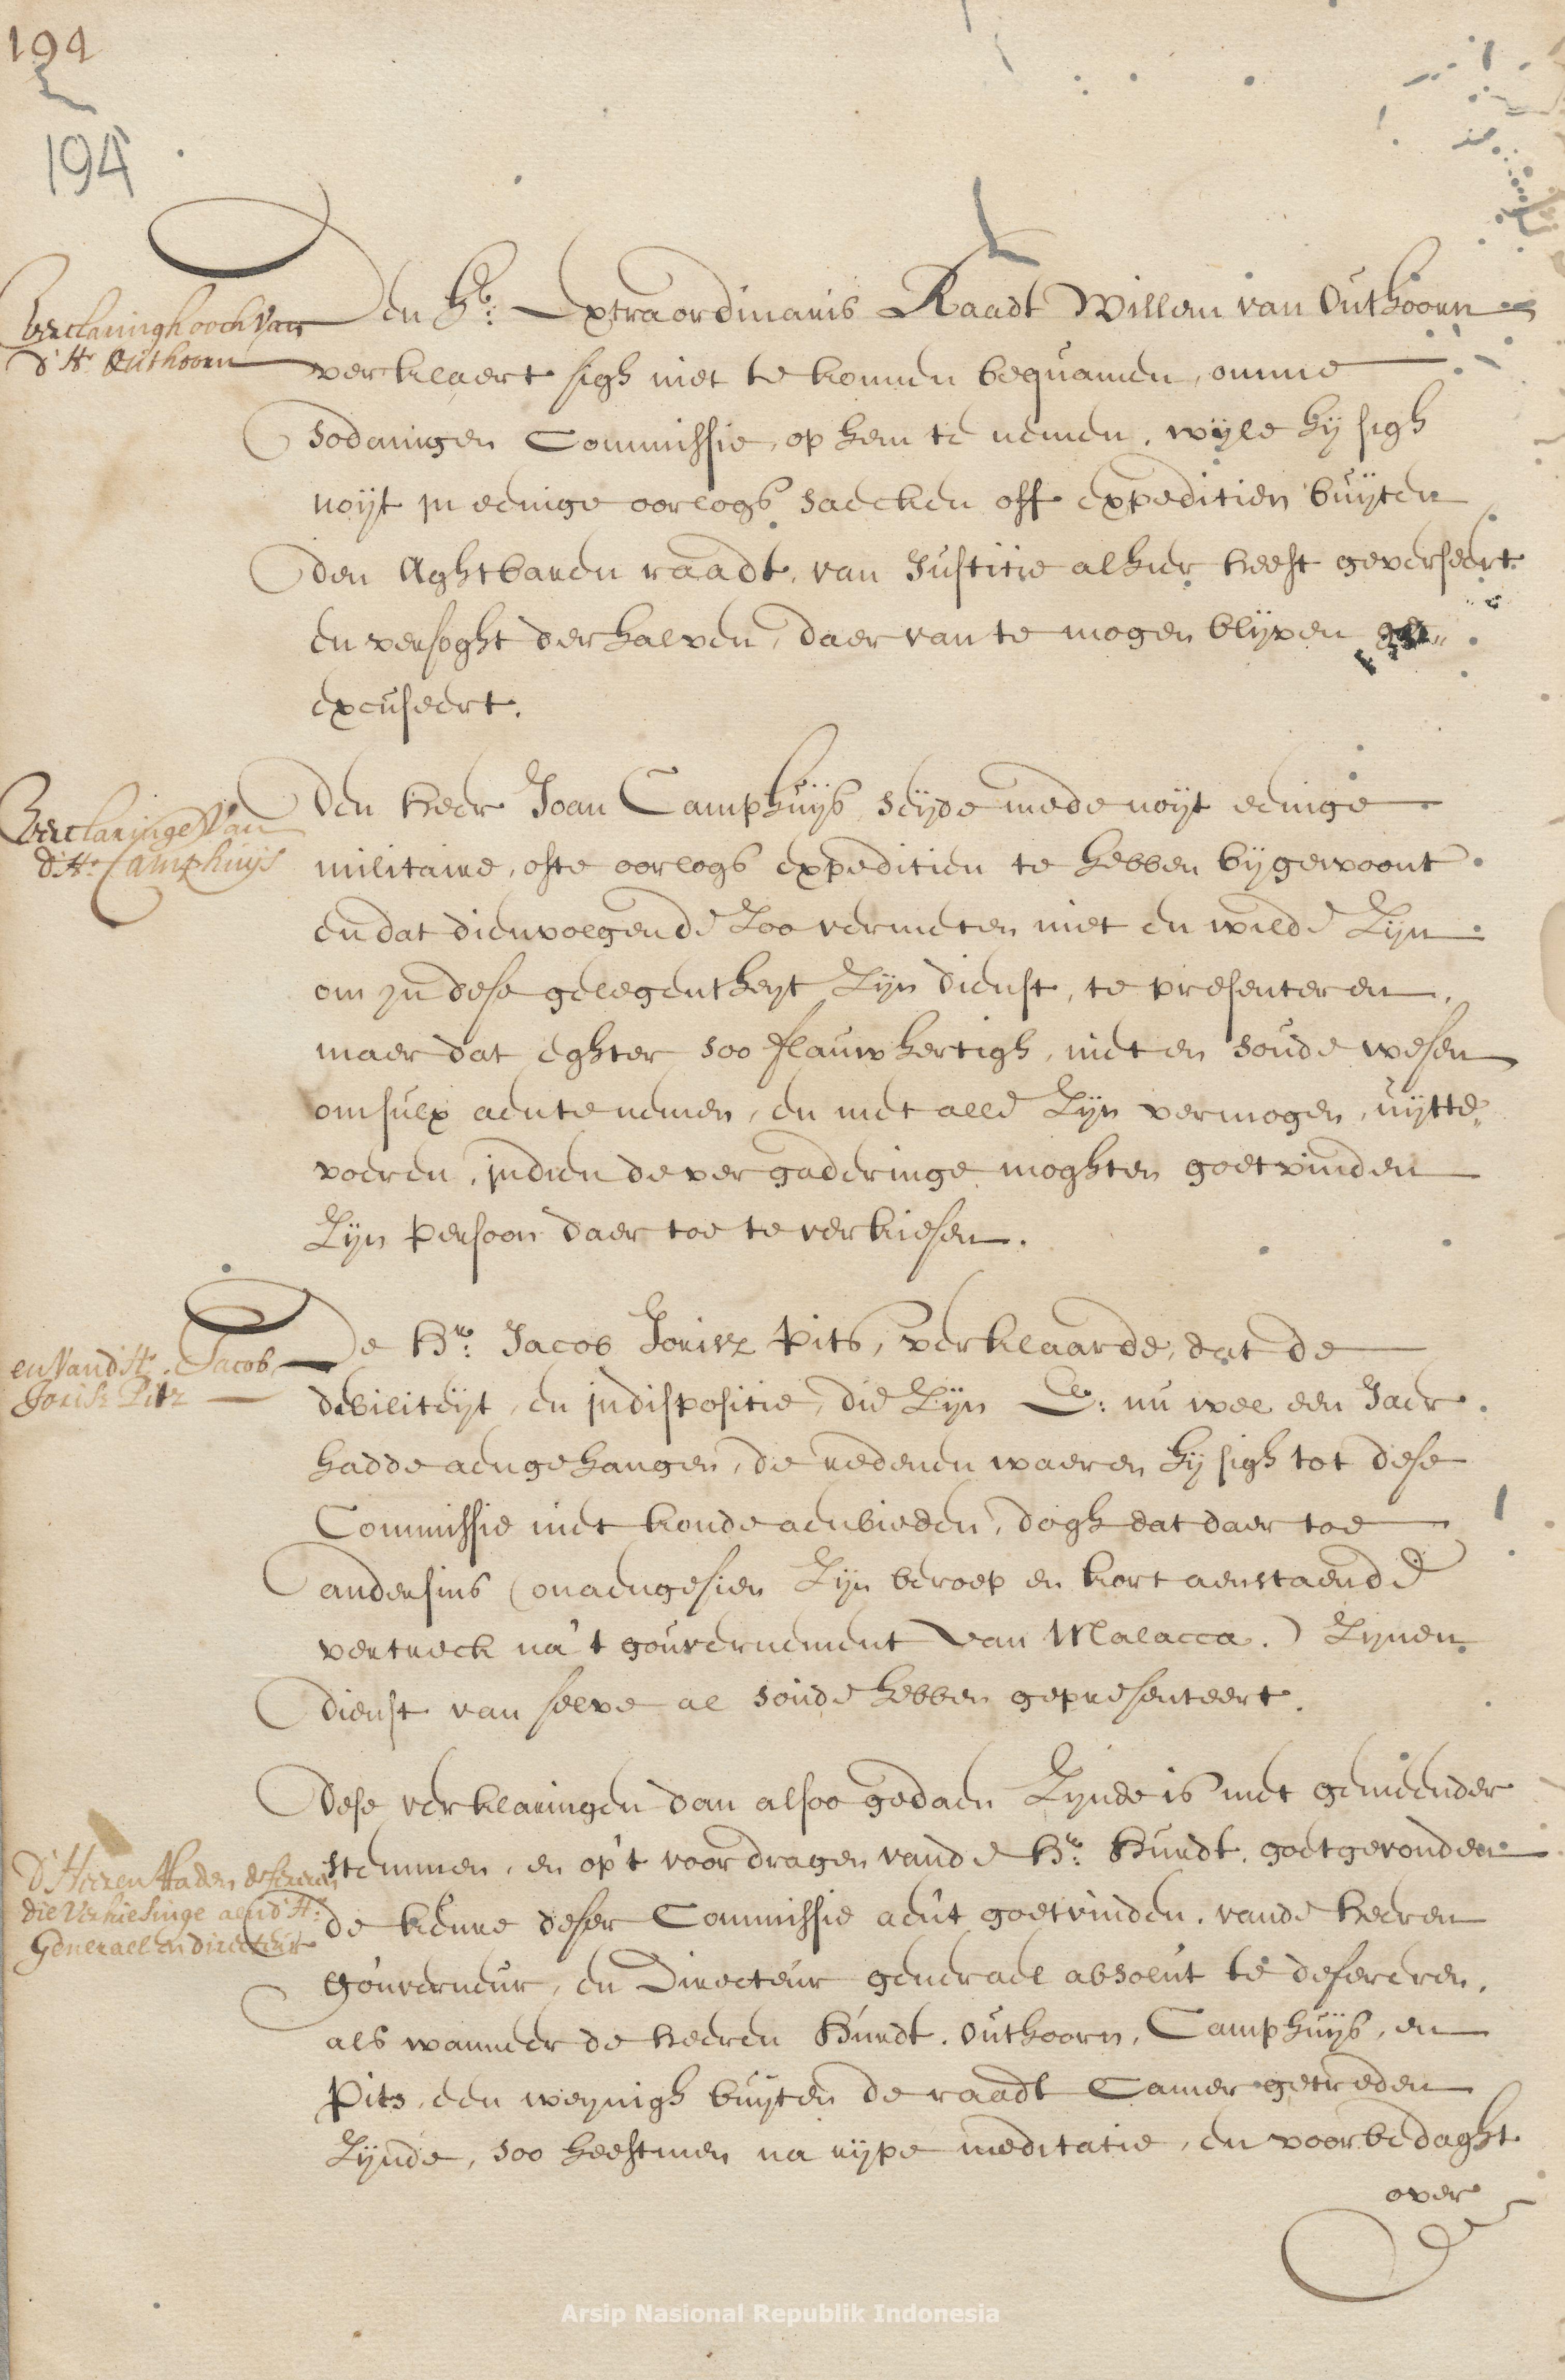 194
194
Verclaringh ooch van
d'Hr. Outhoorn
Den Hr. Extraordinaris Raadt Willem van Outhoorn
verklaert sigh niet te konnen bequamen, omme
sodanigen Commissie, op hem te nemen, wijle hij sigh
noijt in eenige oorlogs saecken off expeditien buijten
den Aghtbaren raadt, van Justitie alhier heeft geverseert
en versoght derhalven, daer van te mogen blijven ge„
excuseert.
Verclaringe van
d'Hr. Camphuijs
Den heer Joan Camphuijs, seijde mede noijt eenige
militaire, ofte oorlogs expeditien te hebben bijgewoont
en dat dienvolgende zoo vermeten niet en wilde zijn
om in dese gelegentheijt zijn dienst, te presenteren,
maer dat eghter soo flauwhertigh, niet en soude wesen
om sulx aen te nemen, en met alle zijn vermogen, uijtte„
voeren, indien de vergaderinge moghten goetvinden
zijn persoon daer toe te verkiesen.
en van d'Hr. Jacob
Jorisz Pits
De Hr. Jacob Jorisz Pits, verklaarde, dat de
debiliteijt, en indispositie, die zijn E: nu wel een Jaer
hadde aengehangen, de redenen waeren hij sigh tot dese
Commissie niet konde aenbieden, dogh dat daer toe
andersins (onaengesien zijn beroep en kort aenstaende
vertreck na 't gouvernement van Malacca.) zijnen
dienst van selve al soude hebben gepresenteert.
D'Heeren Raden defereren
die verkiesinge aen d'Hr.
Generael en directeur
Dese verklaringen dan alsoo gedaen zijnde is met gemeender
stemmen, en op 't voordragen van de Hr. Hurdt, goetgevonden
de keure deser Commissie aen 't goetvinden, van de heeren
Gouverneur, en Directeur generael absolut te defereren,
als wanneer de heeren Hurdt, Outhoorn, Camphuijs, en
Pits, een weijnigh buijten de raadt Camer getreden
zijnde, soo heeftmen na rijpe meditatie, en voorbedaght
over
Arsip Nasional Republik Indonesia